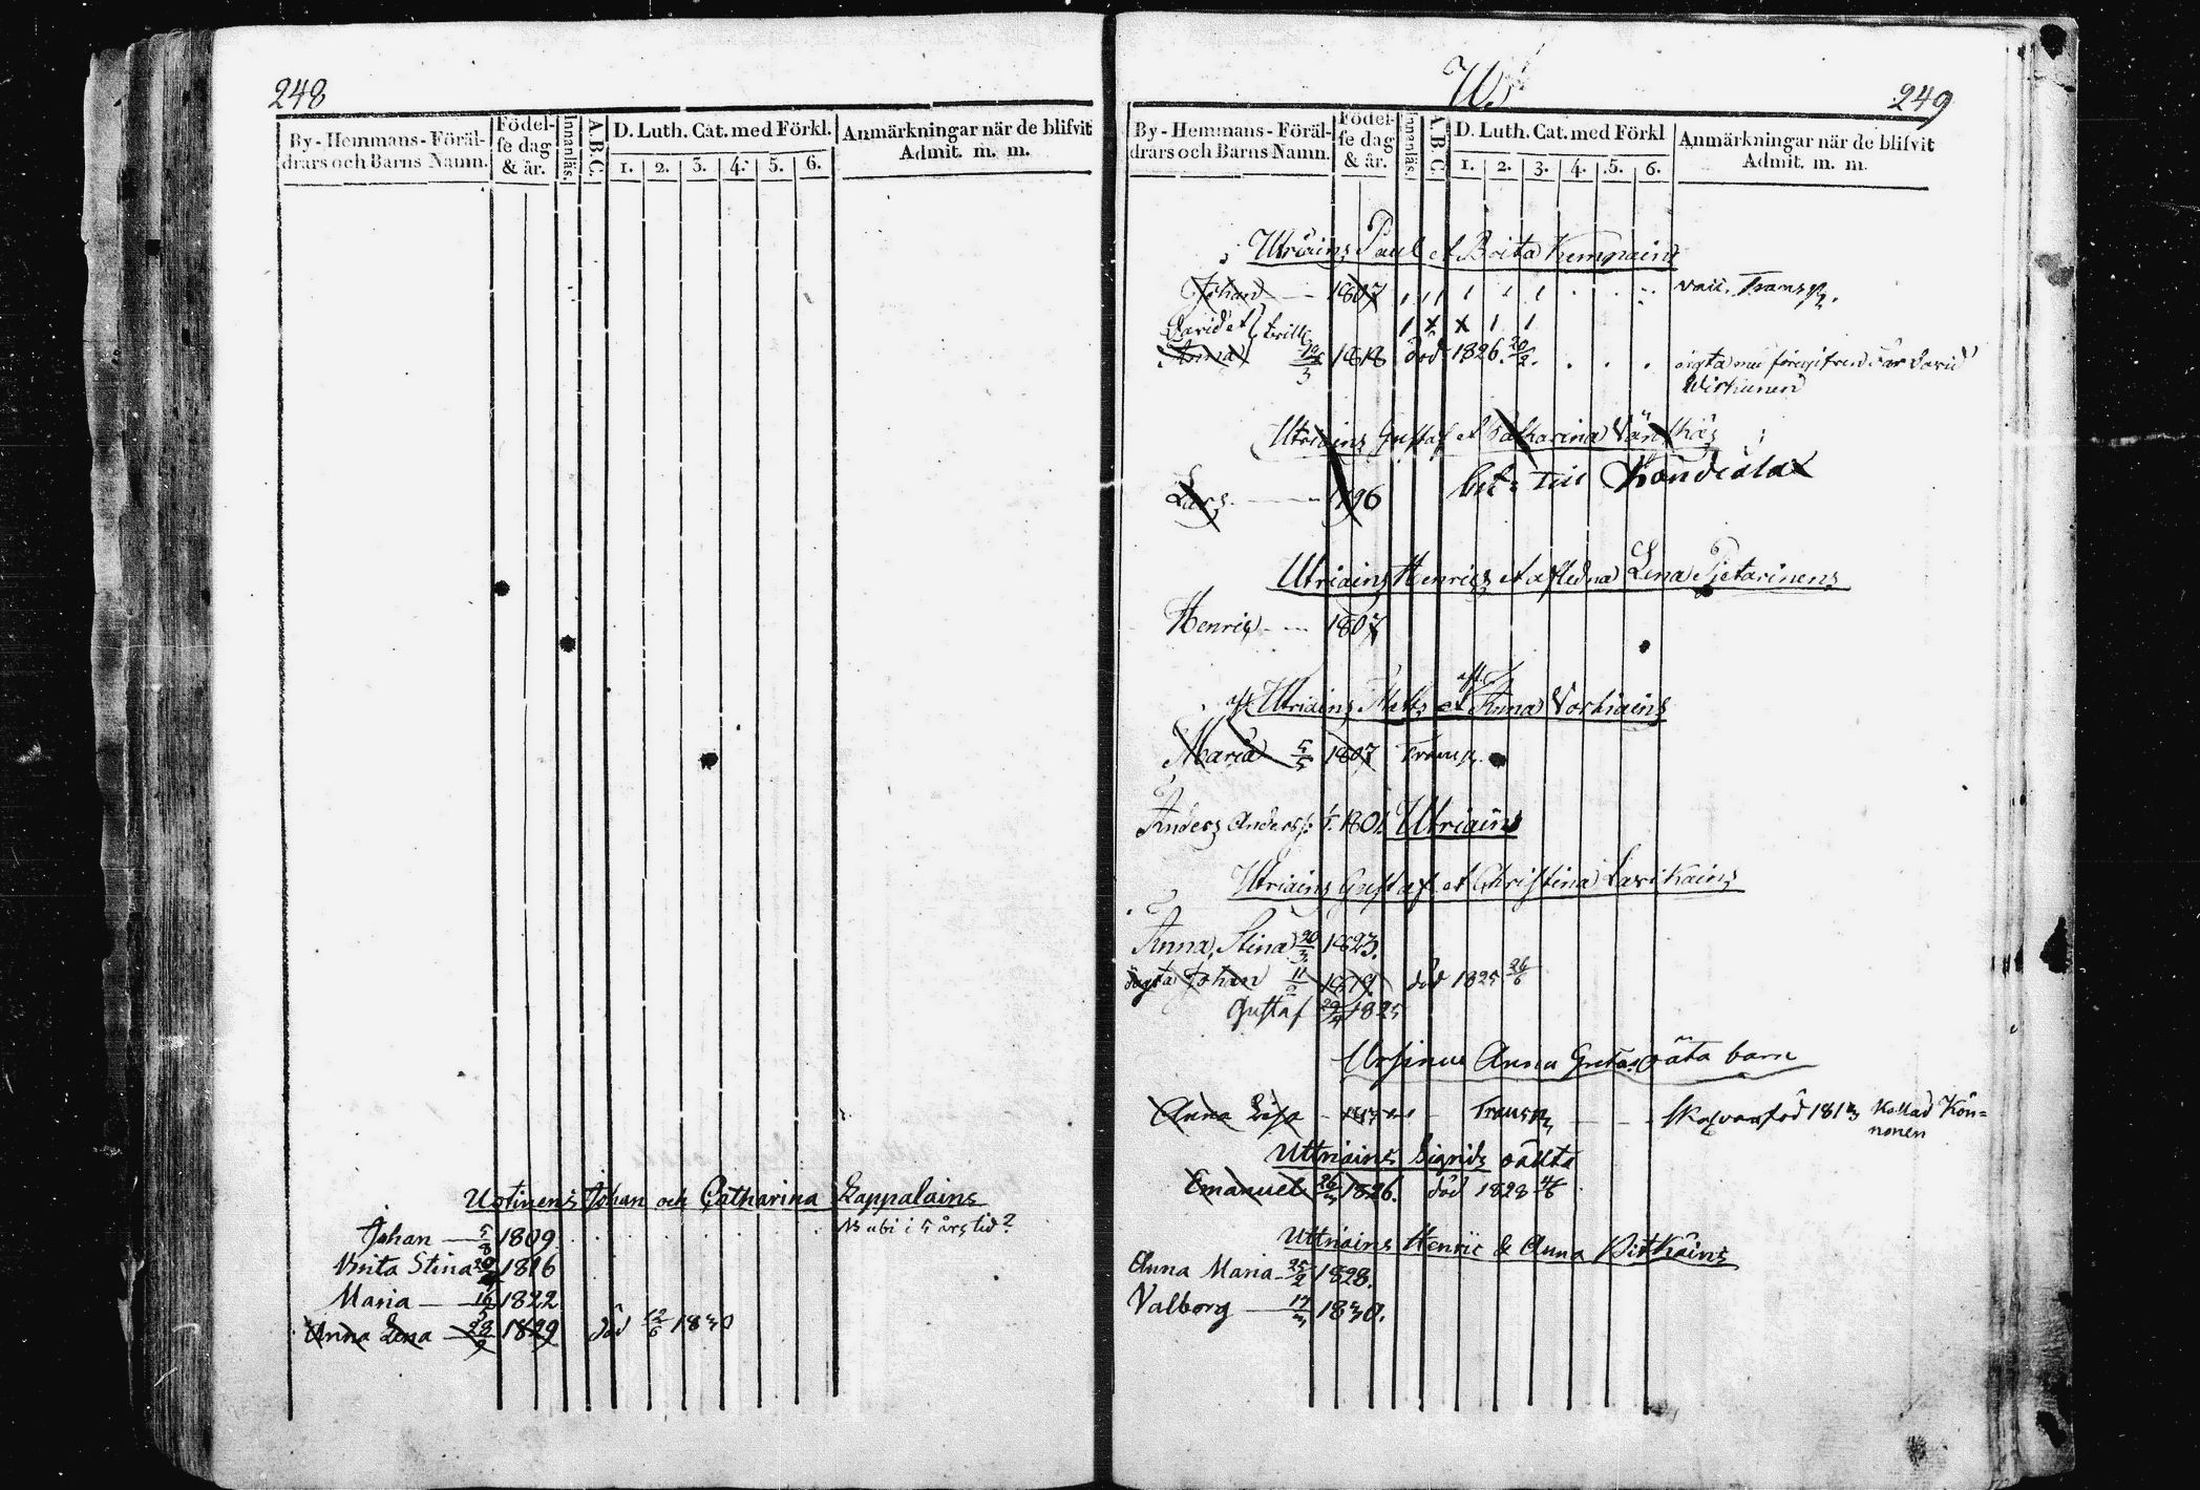 248
By-Hemmans-Föräl-
drars och Barns Namn.
Födel-
se dag
& år.
Innanläs.
A.B.C.
D. Luth. Cat. med Förkl.
1. 2. 3. 4. 5. 6.
Anmärkningar när de blifvit
Admit. m. m.
Uotinens Johan och Catharina Kappalains
Johan 5/8 1809 ubi i 5 års tid?
Brita Stina 1816
Maria 1822
Anna Lena 1829 död 12/6 1830
W.
249
By-Hemmans-Föräl-
drars och Barns Namn.
Födel-
se dag
& år.
Innanläs.
A.B.C.
D. Luth. Cat. med Förkl
1. 2. 3. 4. 5. 6.
Anmärkningar när de blifvit
Admit. m. m.
Utriains Paul et Brita Kempains
Johan 1807 Transp.
David et
Anna 1818 död 1826 20/2. David
Utriains Gustaf et Catharina
Lars 1796 till Kondiala
Utriains Henrics et Lena Pietarinens
Henric 1807
Utriains Matts et Anna Vorhiains
Maria 5/5 1807 Transp.
Anders Anderss: 1801. Utriains
Utriains Gustaf et Christina Lavikains
Anna Stina 1823.
Johan 11/2 1819 död 1825 26/6
Gustaf 1825
Anna Gretas oäta barn
Anna Lisa Transp född 1813 Kallad Kön-
nonen
Uttriains Sigrids oäckta
Emanuel 1826. död 1828 4/6
Uttriains Henric & Anna Pitkäins
Anna Maria 25/2 1828.
Valborg 17/3 1830.